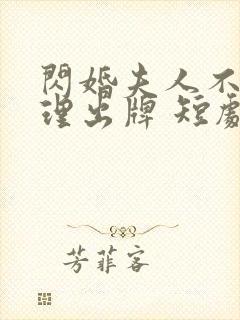 閃婚夫人不
理出牌 短劇
芳菲客